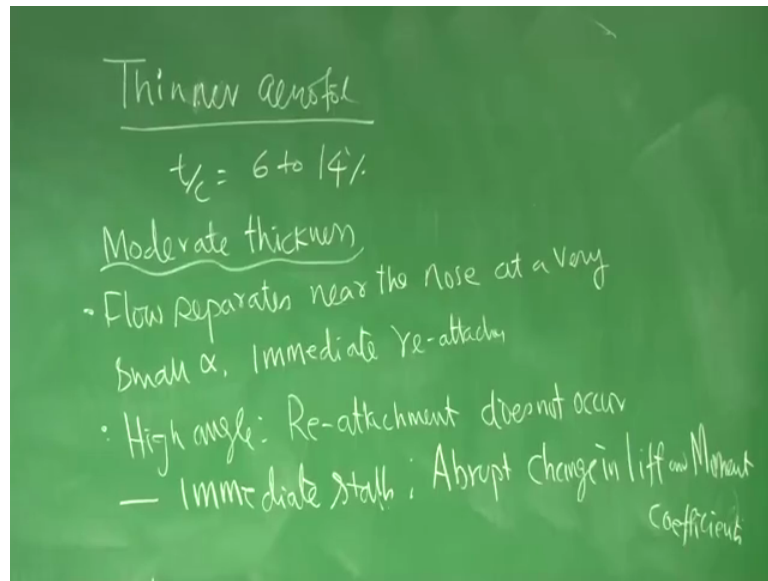 Thinner aerofoil
t/c = 6 to 14%
Moderate thickness
• Flow separates near the nose at a very
small α. Immediate re-attaches
• High angle: Re-attachment does not occur
— Immediate stall; Abrupt change in lift and Moment
Coefficients